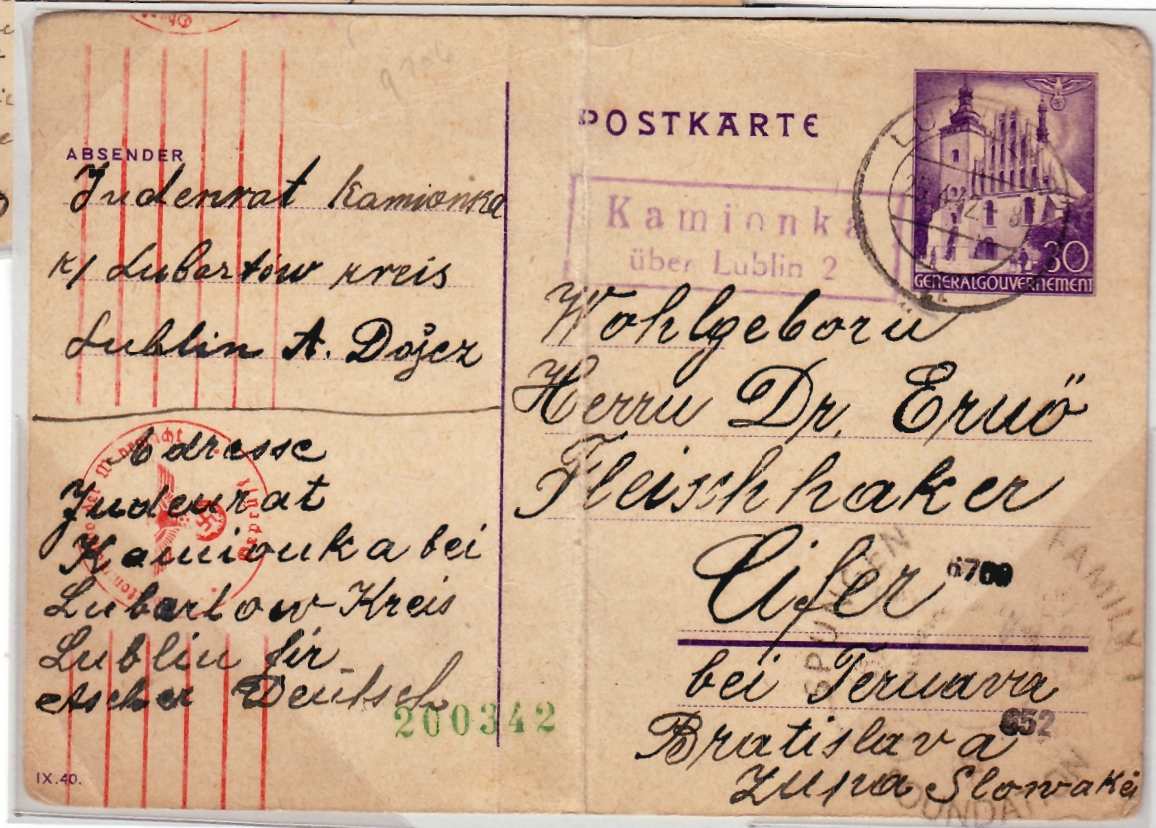 POSTKARTE
GENERALGOUVERNEMENT
30
Kamionka
über Lublin 2
ABSENDER
Judenrat Kamionka
K/ Lubartów Kreis
Lublin A. Dojcz
Adresse
Judenrat
Kamionka bei
Lubartow-Kreis
Lublin für
Ascher Deutsch
200342
IX.40.
Wohlgeborn
Herrn Dr. Ernö
Fleischhaker
Cifer
6700
bei Ternava
Bratislava
652
Zupa Slowakei
SPUNGEN
FAMILY
FOUNDATION